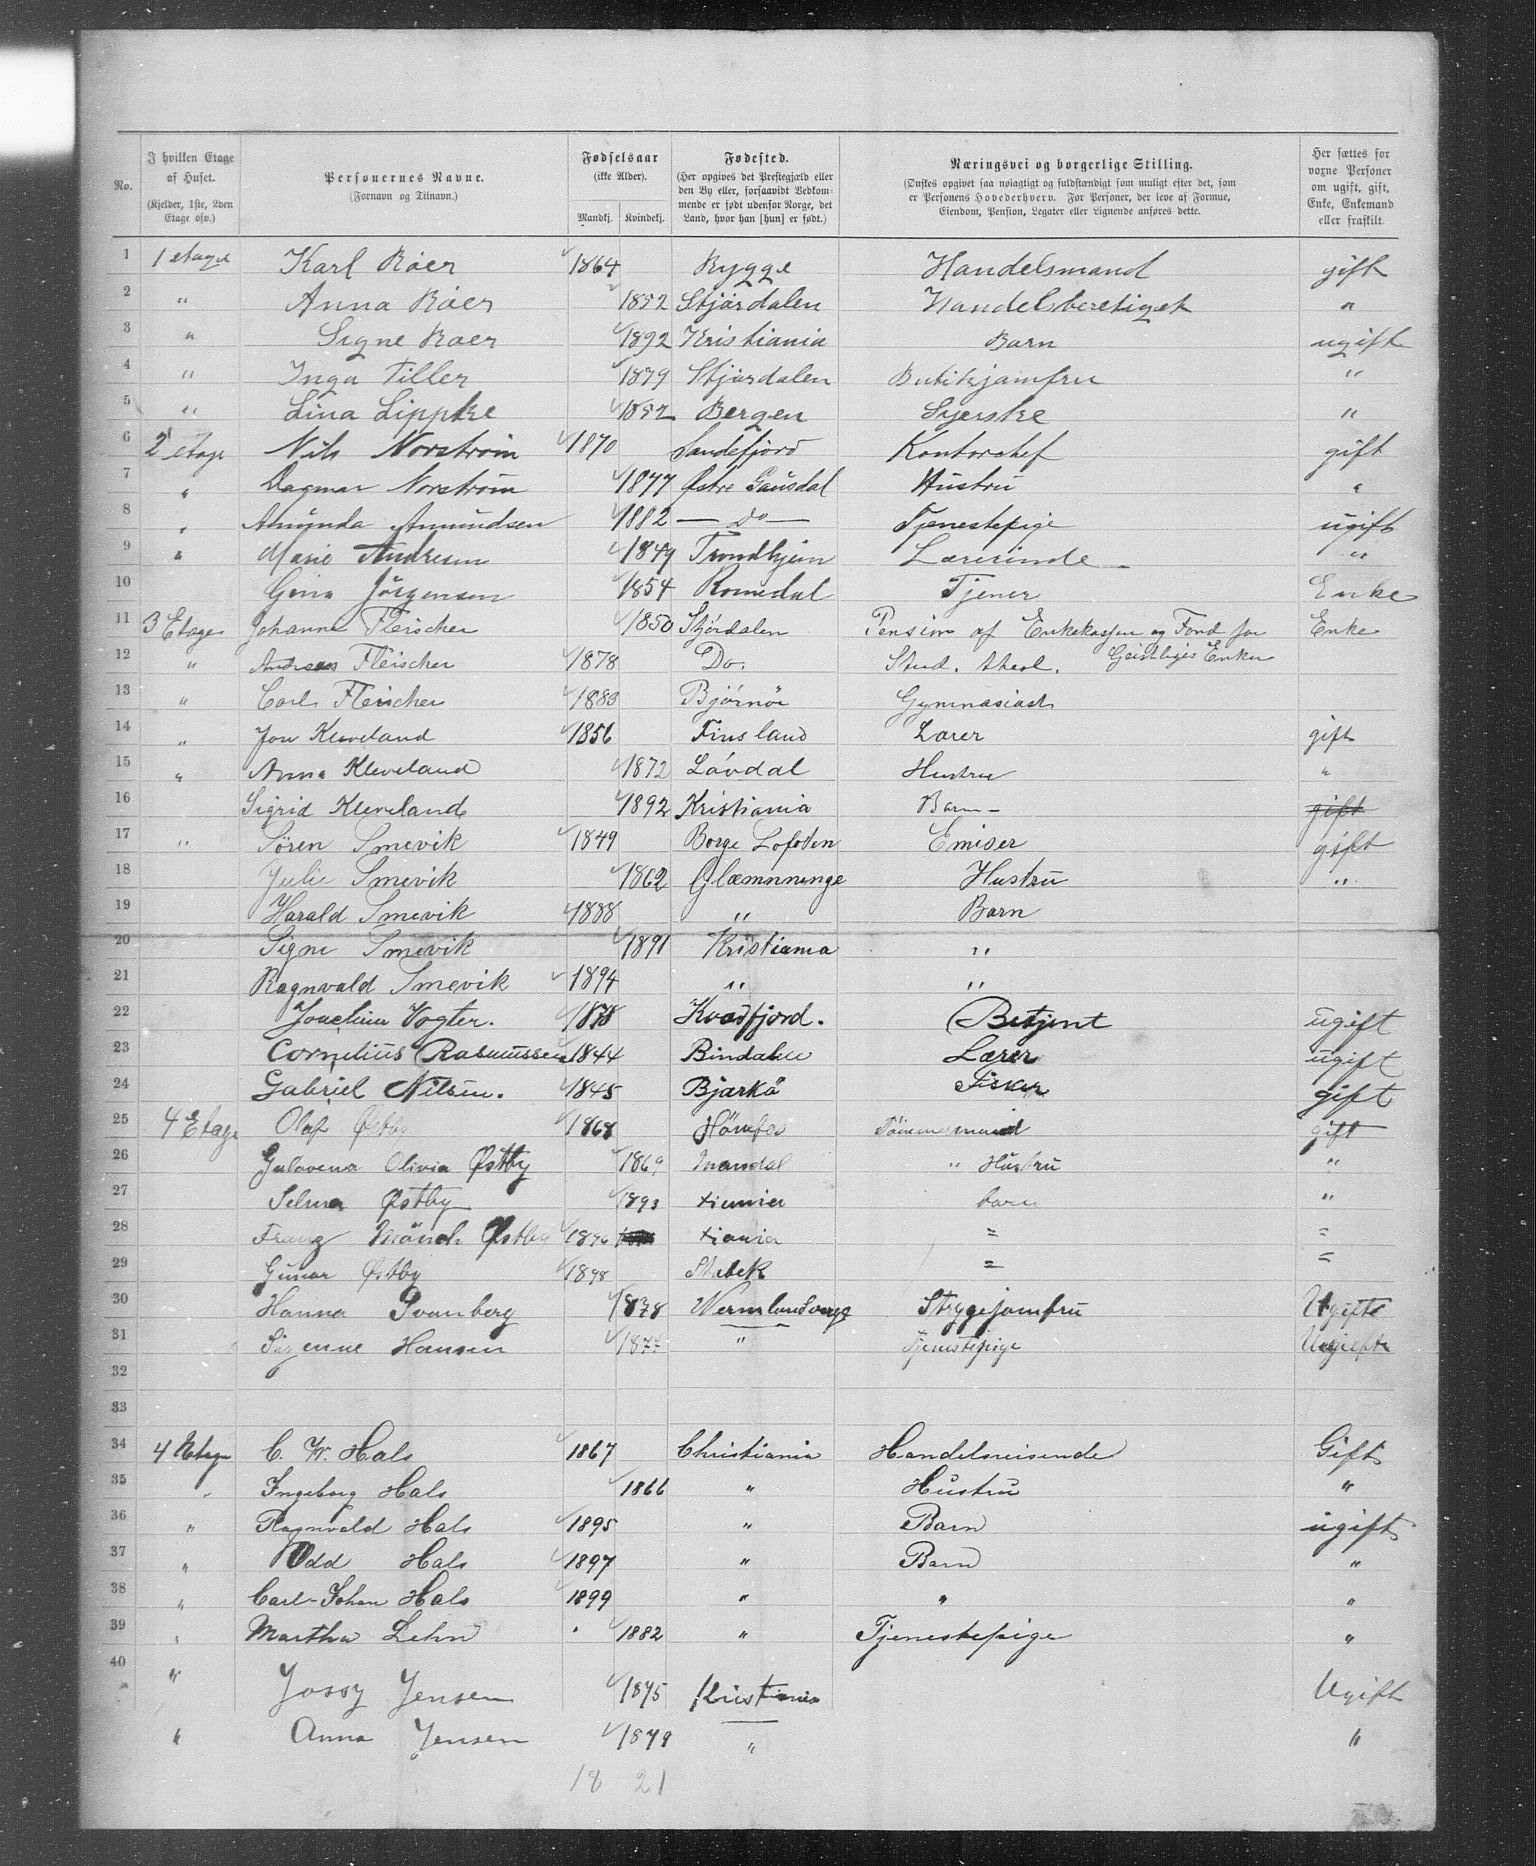 No. | I hvilken Etage af Huset. (Kjelder, 1ste, 2den Etage osv.) | Personernes Navne. (Fornavn og Tilnavn.) | Fødselsaar (ikke Alder). Mandkj. Kvindekj. | Fødested. (Her opgives det Prestegjæld eller den By eller, forsaavidt Vedkommende er født udenfor Norge, det Land, hvor han [hun] er født.) | Næringsvei og borgerlige Stilling. (Ønskes opgivet saa nøiagtigt og fuldstændigt som muligt efter det, som er Personens Hovederhverv. For Personer, der leve af Formue, Eiendom, Pension, Legater eller Lignende anføres dette. | Her sættes for voxne Personer om ugift, gift, Enke, Enkemand eller fraskilt.
1 1 etage Karl Röer 1864 Rygge Handelsmand gift
2 " Anna Röer 1852 Stjördalen Handelsberetiget "
3 " Signe Röer 1892 Kristiania Barn ugift
4 " Inga Tiller 1879 Stjördalen Butikjomfru "
5 " Lina Lippke 1852 Bergen Syerske "
6 2 etage Nils Norström 1870 Sandefjord Kontorchef gift
7 " Dagmar Norström 1877 Østre Gausdal Hustru "
8 " Amunda Amundsen 1882 — Do — Tjenestepige ugift
9 " Marie Andresen 1849 Trondhjem Lærerinde "
10 Gina Jörgensen 1854 Romedal Tjener Enke
11 3 Etage Johanne Fleischer 1850 Stjórdalen Pension af Enkekassen og Fond for Geistliges Enker Enke
12 " Andreas Fleischer 1878 Do. Stud. theol.
13 " Carl Fleischer 1883 Bjórnör Gymnasiast
14 " Jon Kleveland 1856 Finsland Lærer gift
15 " Anna Kleveland 1872 Lövdal Hustru "
16 Sigrid Kleveland 1892 Kristiania Barn gift
17 " Sören Smevik 1849 Borge Lofoten Emisær gift
18 Julie Smevik 1862 Glæmnnenge Hustru "
19 Harald Smevik 1888 " Barn
20 Signe Smevik 1891 Kristiania "
21 Ragnvald Smevik 1894 " "
22 Joachim Vogter. 1878 Kvadfjord. Betjent ugift
23 Cornelius Rasmussen 1844 Bindalen Lærer ugift
24 Gabriel Nilsen. 1845 Bjarkö Fisker gift
25 4 Etage Olaf Østby 1868 Tömmermand gift
26 Olivia Østby 1869 Mandal " Hustru "
27 Selma Østby 1893 barn "
28 Mönch Østby = =
29 Gunar Østby 1898 Stabek = =
30 Hanna Svanberg 1878 Strygejomfru Ugift
31 Hansen 1877 " Tjenestepige Ugift
32
33
34 4 Etage C. Fr. Hals 1867 Christiania Handelsreisende Gift
35 " Ingeborg Hals 1866 " Hustru "
36 " Ragnvald Hals 1895 " Barn ugift
37 " Odd Hals 1897 " Barn "
38 " Carl-Johan Hals 1899 " " "
39 " Martha Lehn 1882 " Tjenestepige "
40 " Jossy Jensen 1875 Kristiania Ugift
" Anna Jensen 1879 " "
18 21